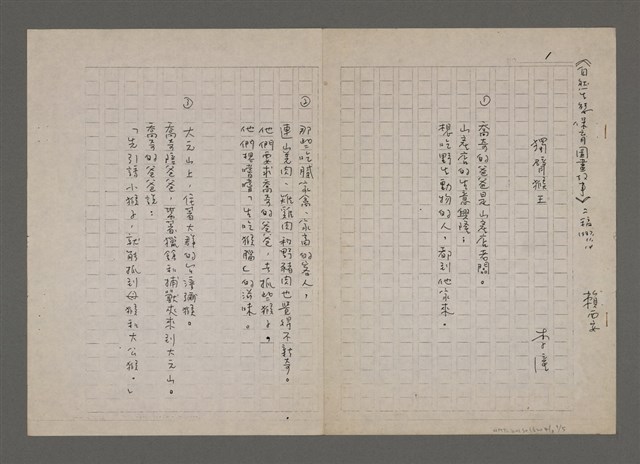 《自然生態保育圖畫故事》二稿
獨臂猴王
賴西安
李潼
1
① 喬奇的爸爸是山產店老闆。
山產店的生意興隆，
想吃野生動物的人，都到他家來。
② 那些吃膩家禽、家畜的客人，
連山羌肉、雉雞肉和野豬肉也覺得不新奇。
他們要求喬奇的爸爸，去抓些猴子，
他們想嚐嚐「生吃猴腦」的滋味。
③ 大元山上，住著大群的台灣獼猴。
喬奇陪爸爸，帶著獵銃和捕獸夾來到大元山。
喬奇的爸爸說：
「先引誘小猴子，就能抓到母猴和大公猴。」